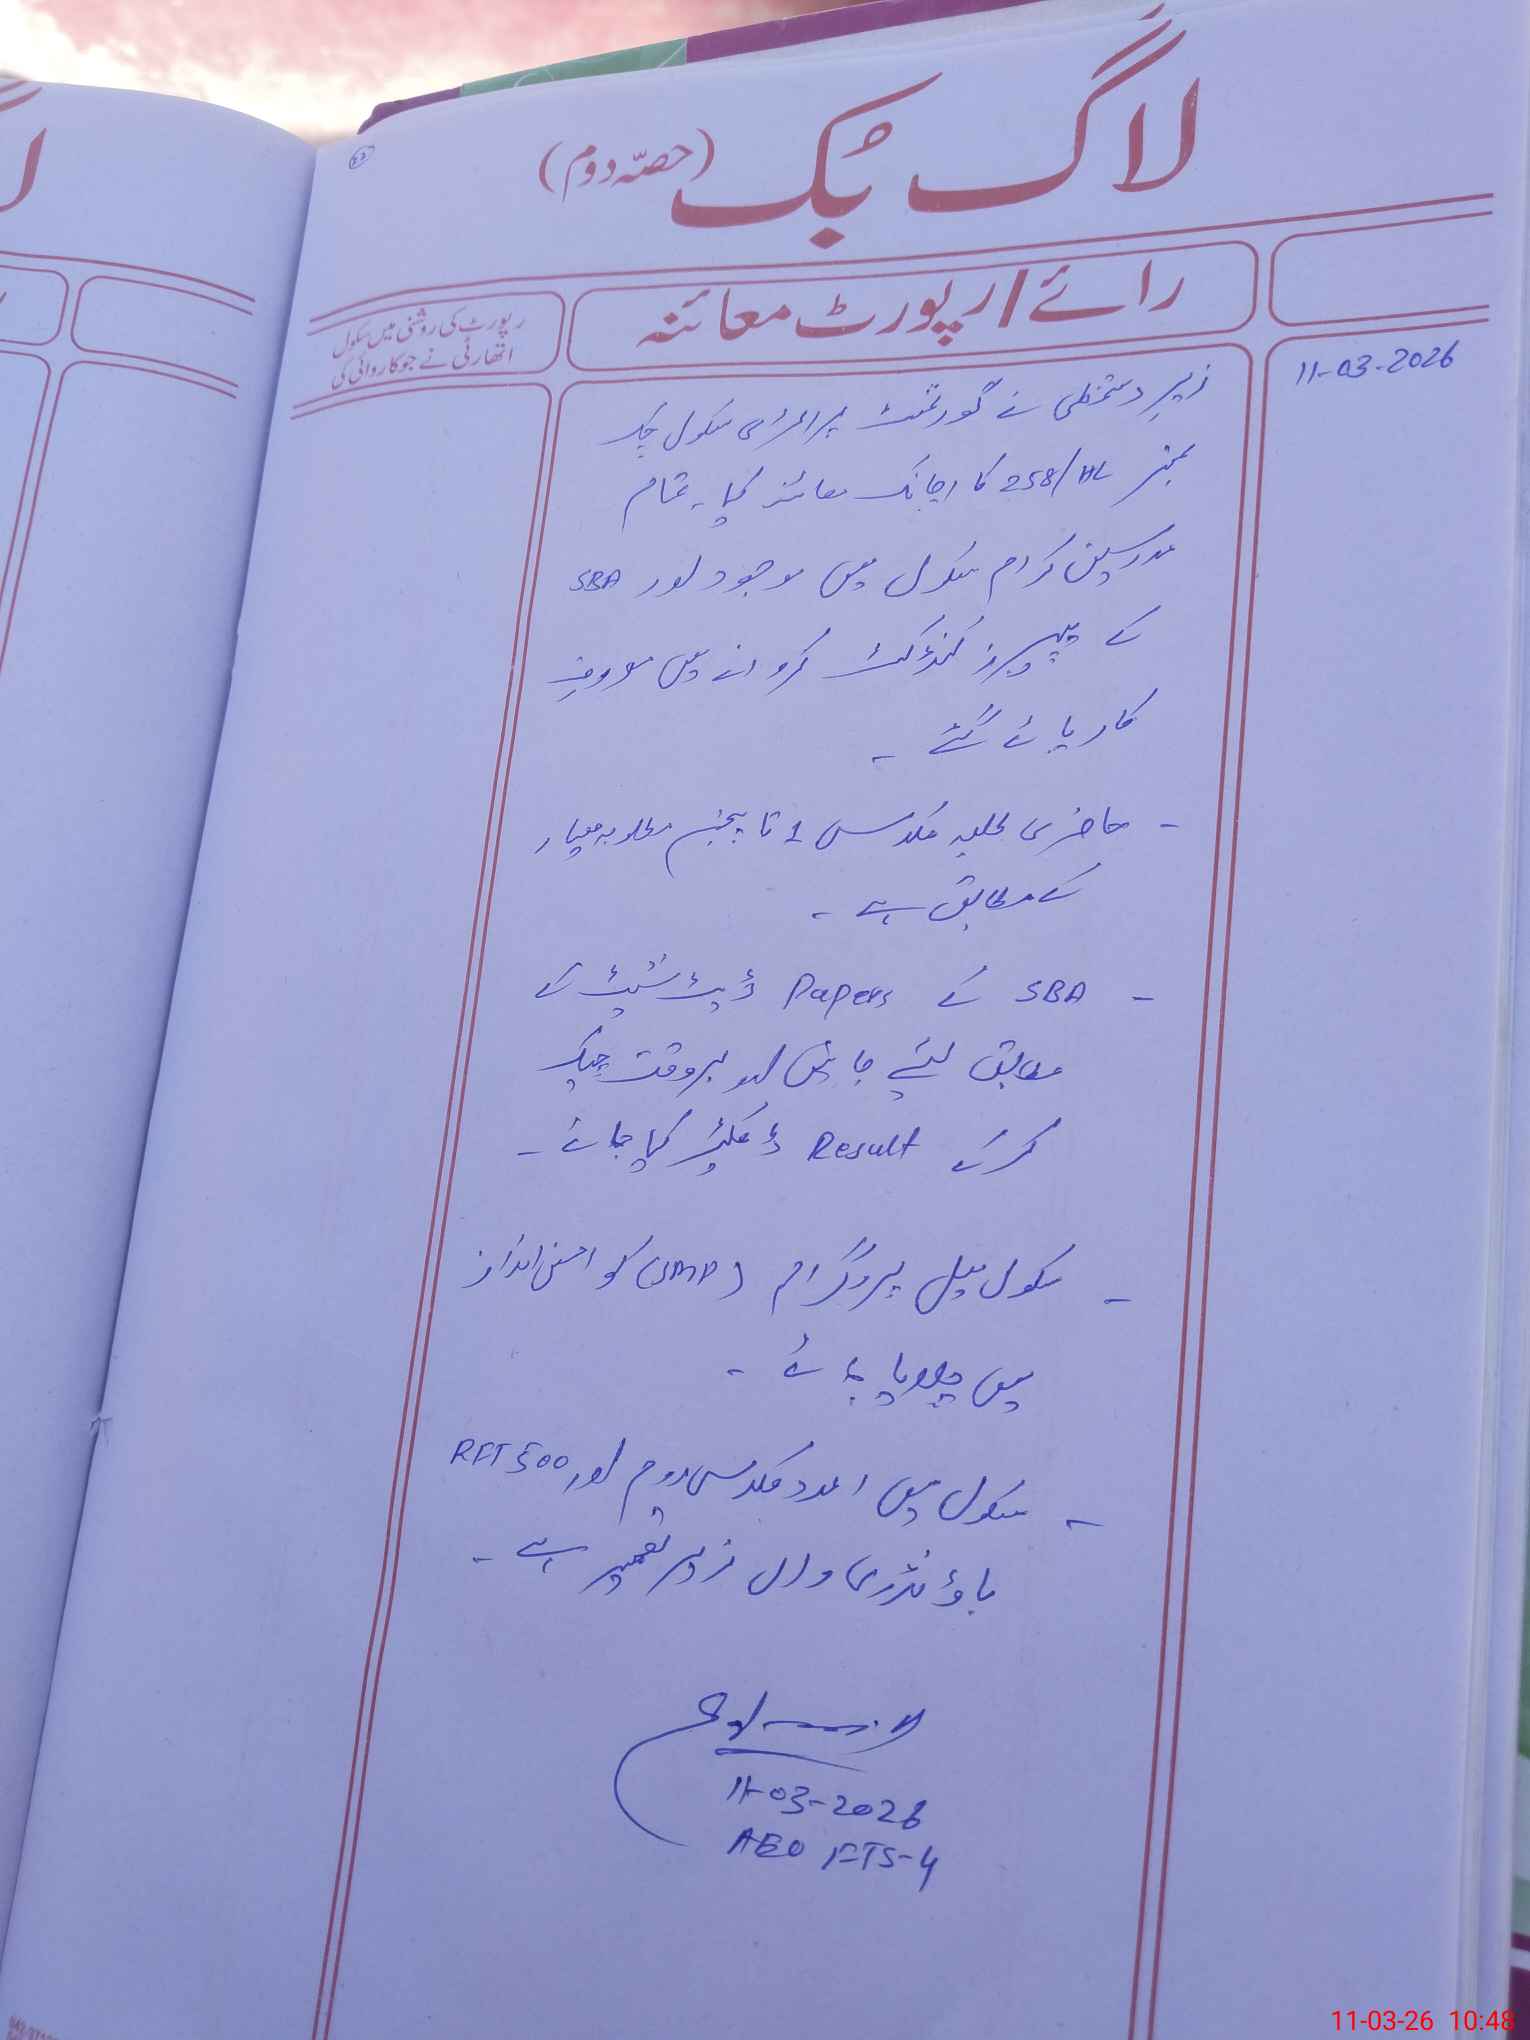 لاگ بُک (حصّہ دوم)
رائے / رپورٹ معائنہ
رپورٹ کی روشنی میں سکول
اتھارٹی نے جو کاروائی کی
11-03-2026
زیرِ دستخطی نے گورنمنٹ پرائمری سکول چک
نمبر 258/HL کا اچانک معائنہ کیا۔ تمام
مدرسین کرام سکول میں موجود اور SBA
کے پیپرز کنڈکٹ کروانے میں مصروفِ
کار پائے گئے ۔
- حاضری طلبہ کلاس 1 تا پنجم مطلوبہ معیار
کے مطابق ہے ۔
- SBA کے Papers ڈیٹ شیٹ کے
مطابق لیئے جائیں اور بروقت چیک
کر کے Result ڈکلیئر کیا جائے ۔
- سکول میل پروگرام (SMP) کو احسن انداز
میں چلایا جائے ۔
- سکول میں 1 عدد کلاس روم اور RFT 500
باؤنڈری وال زیر تعمیر ہے ۔
11-03-2026
AEO FTS-4
11-03-26 10:48